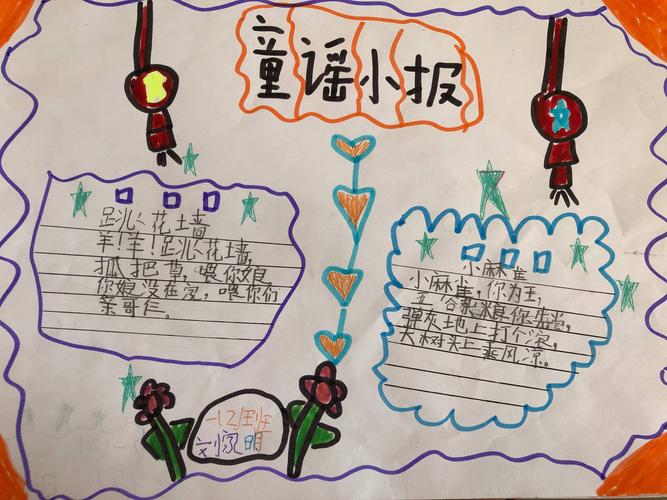 童谣小报
跳花墙
羊!羊!跳花墙,
抓把草,喂你娘
你娘没在家,喂你们
亲哥仨。
小麻雀
小麻雀,你为王,
五谷杂粮你先尝,
弹灰地上打个滚,
大树头上乘风凉。
一(2)班
刘家明